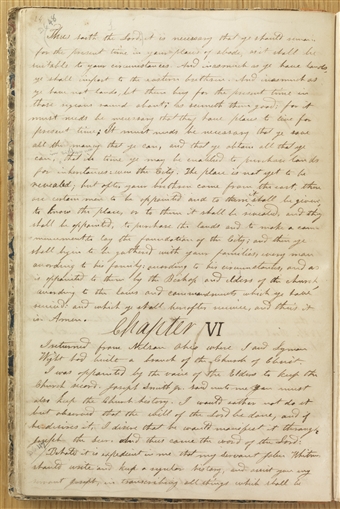 Thus saith the Lord, it is necessary that ye should remain
for the present time in your places of abode, as it shall be
suitable to your circumstances. And inasmuch as ye have lands,
ye shall impart to the eastern brethren. And inasmuch as
ye have not lands, let them buy for the present time in
those regions round about; as seemeth them good. for it
must needs be necessary that they have places to live for
present time; It must needs be necessary that ye save
all the money that ye can, and that ye obtain all that ye
can, that in time ye may be enabled to purchase lands
for inheritance: even the City. The place is not yet to be
revealed; but after your brethren come from the east, there
are certain men to be appointed and to them, shall be given,
to know the place, or to them it shall be revealed, and they
shall be appointed, to purchase the lands and to make a com-
mencement to lay the foundation of the City; and then ye
shall begin to be gathered with your families; every man
according to his family; according to his circumstances, and as
is appointed to them by the Bishop and Elders of the church
according to the laws and commandments, which ye have
received; and which ye shall hereafter receive, and thus it
is Amen.
Chapter VI
I returned from Nelson Ohio where I and Lyman
Wight had built a branch of the Church of Christ.
I was appointed by the voice of the Elders to keep the
Church record. Joseph Smith Jr. said unto me you must
also keep the Church history. I would rather not do it
but observed that the will of the Lord be done, and if
he desires it, I desire that he would manifest it through
Joseph the Seer. And thus came the word of the Lord:
Behold it is expedient in me that my servant John Whitmer
should write and keep a regular history, and assist you my
servant Joseph, in transcribing all things which shall be